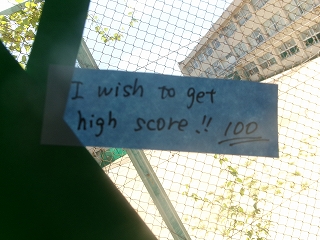 I wish to get
high score!! 100